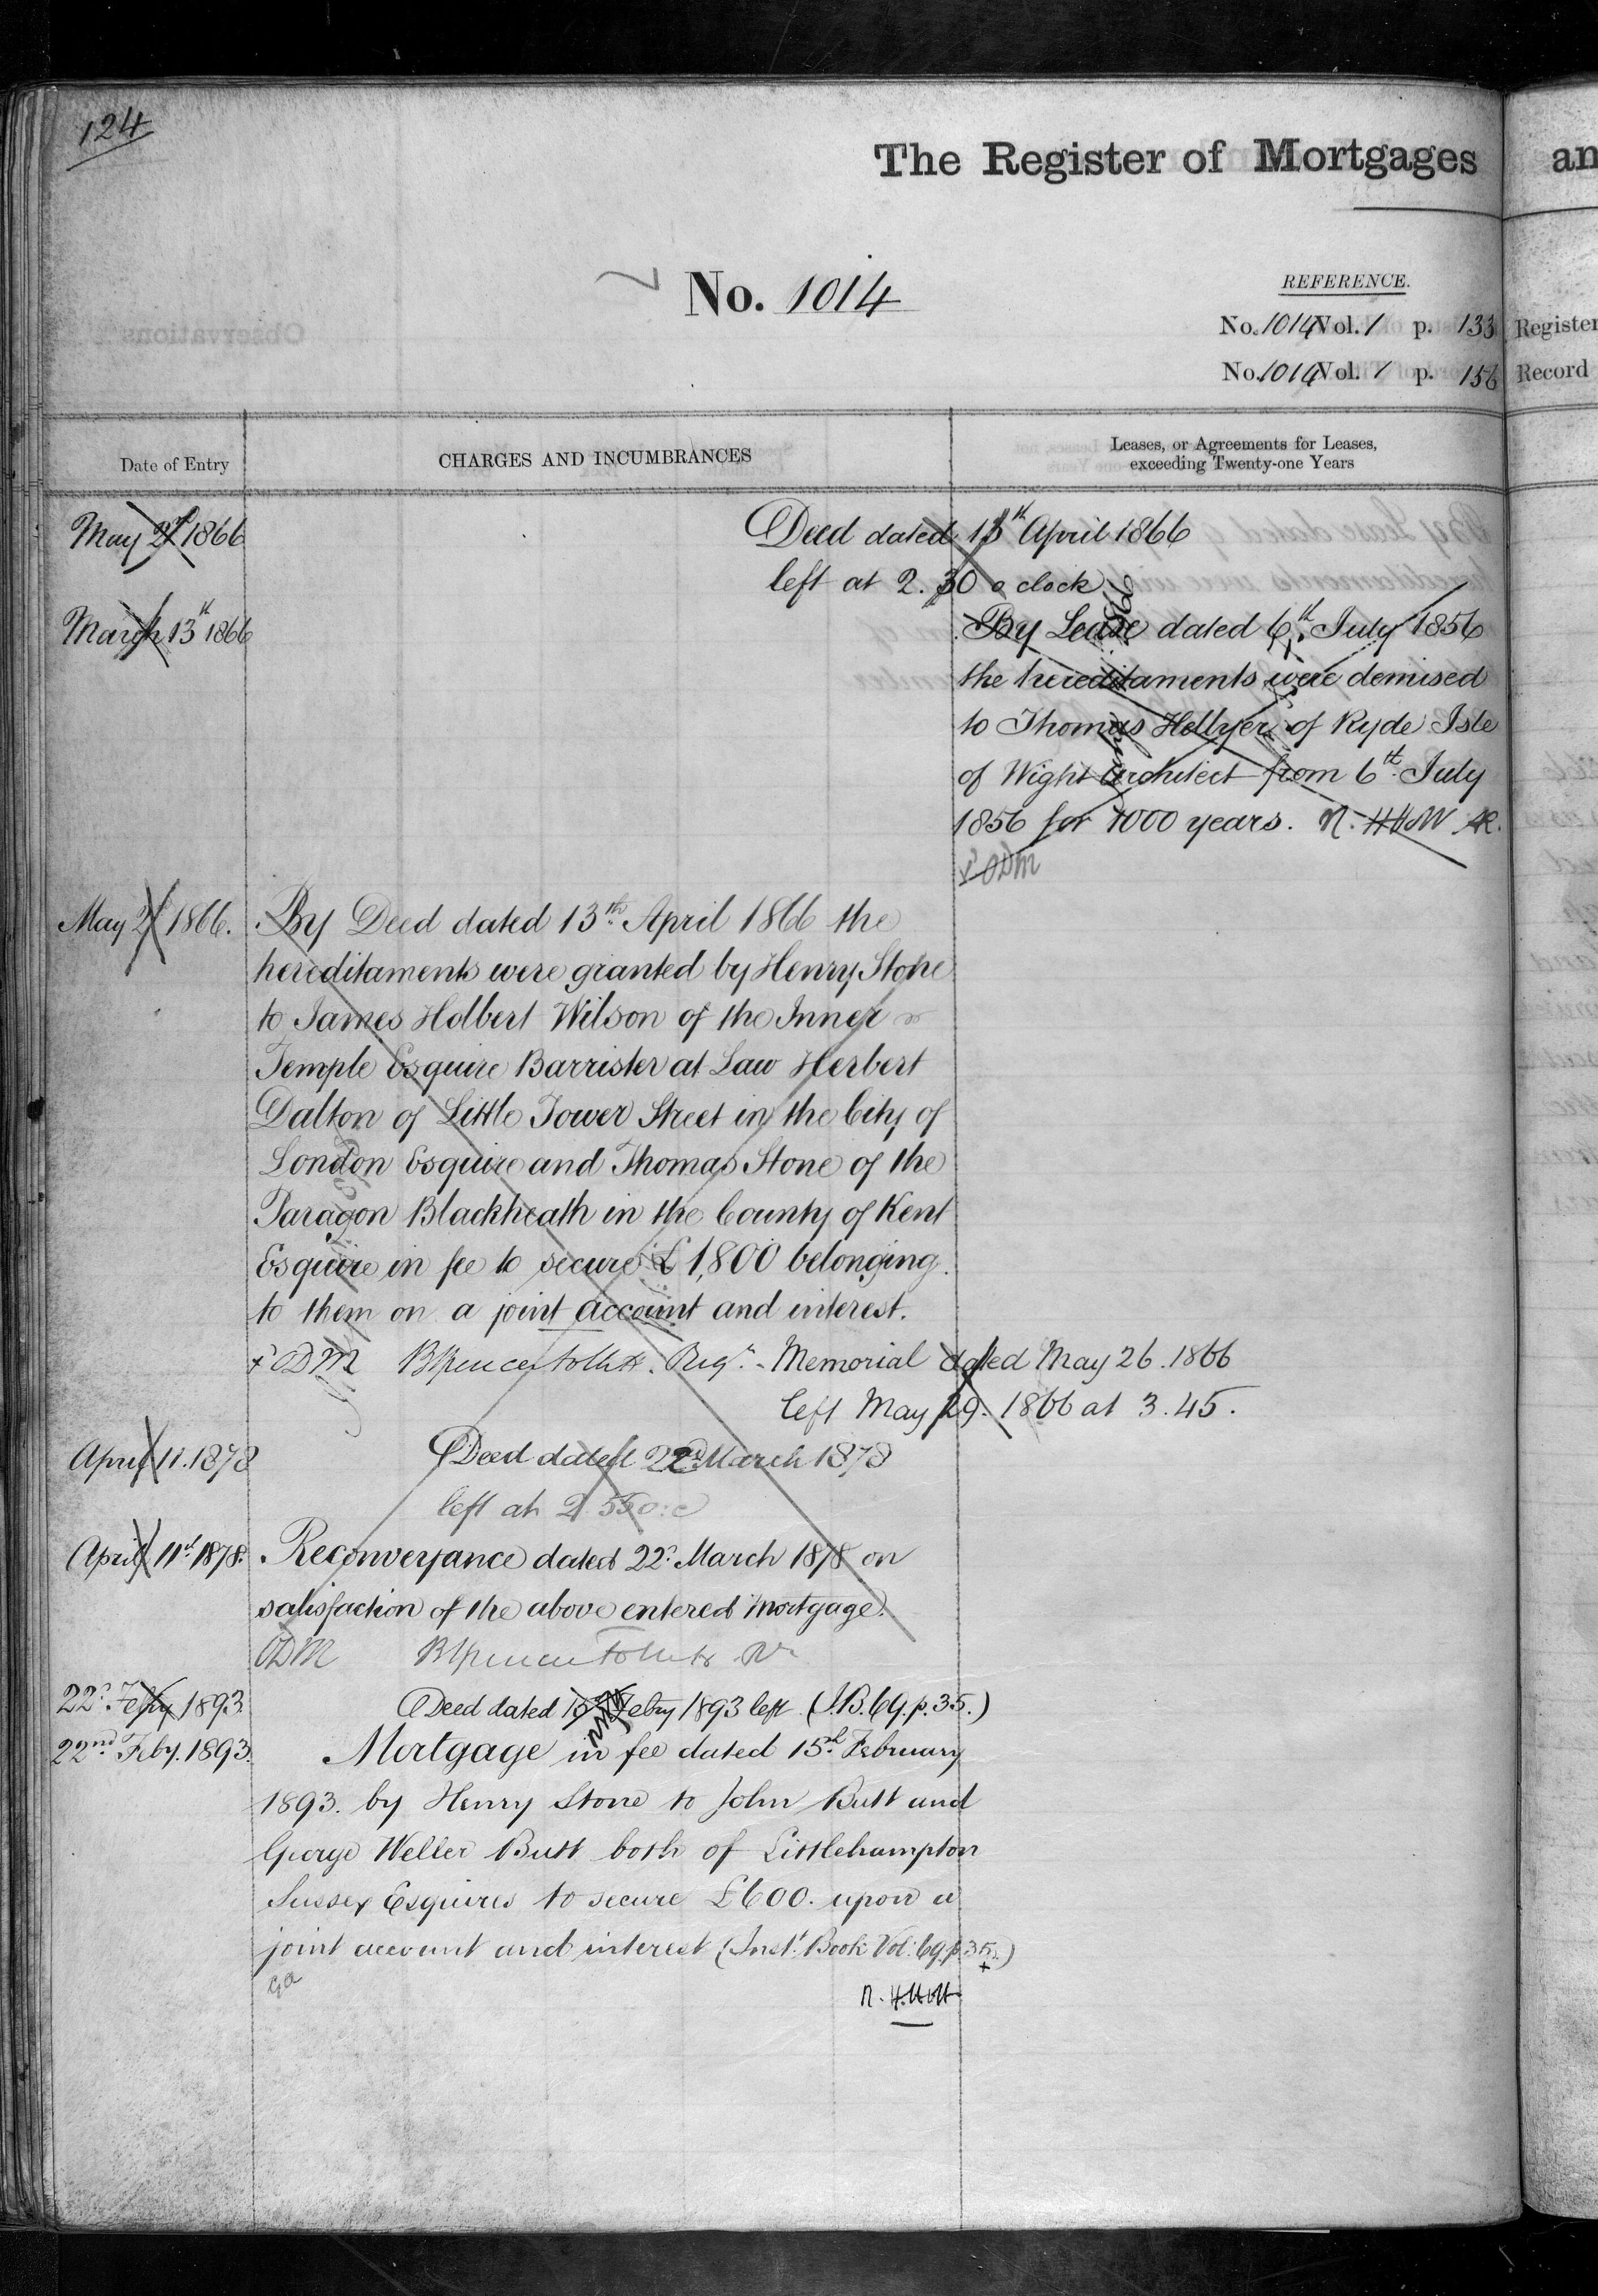 124
The Register of Mortgages an
No. 1014
REFERENCE.
No. 1014 Vol. 1 p. 133 Register
No. 1014 Vol. 1 p. 156 Record
Date of Entry
CHARGES AND INCUMBRANCES
Leases, or Agreements for Leases,
exceeding Twenty-one Years
May 2d 1866 Deed dated 13th April 1866
left at 2.30 o clock
March 13th 1866 By Lease dated 6th July 1856
the hereditaments were demised
to Thomas Hellyer of Ryde Isle
of Wight Architect from 6th July
1856 for 1000 years.
ODM
May 2d 1866. By Deed dated 13th April 1866 the
hereditaments were granted by Henry Stone
to James Holbert Wilson of the Inner
Temple Esquire Barrister at Law Herbert
Dalton of Little Tower Street in the City of
London Esquire and Thomas Stone of the
Paragon Blackheath in the County of Kent
Esquire in fee to secure £1,800 belonging
to them on a joint account and interest.
ODM Regr. Memorial dated May 26. 1866
left May 29. 1866 at 3.45.
April 11. 1878 Deed dated 22d March 1878
left at 2.55 o:c
April 11th 1878. Reconveyance dated 22d March 1878 on
satisfaction of the above entered Mortgage.
ODM
22d Feby 1893 Deed dated 15th Febry 1893 left (I.B. 69. p. 35.)
22nd Feby. 1893. Mortgage in fee dated 15th February
1893. by Henry Stone to John Butt and
George Weller Butt both of Littlehampton
Sussex Esquires to secure £600. upon a
joint account and interest (Inst. Book Vol: 69. p. 35.)